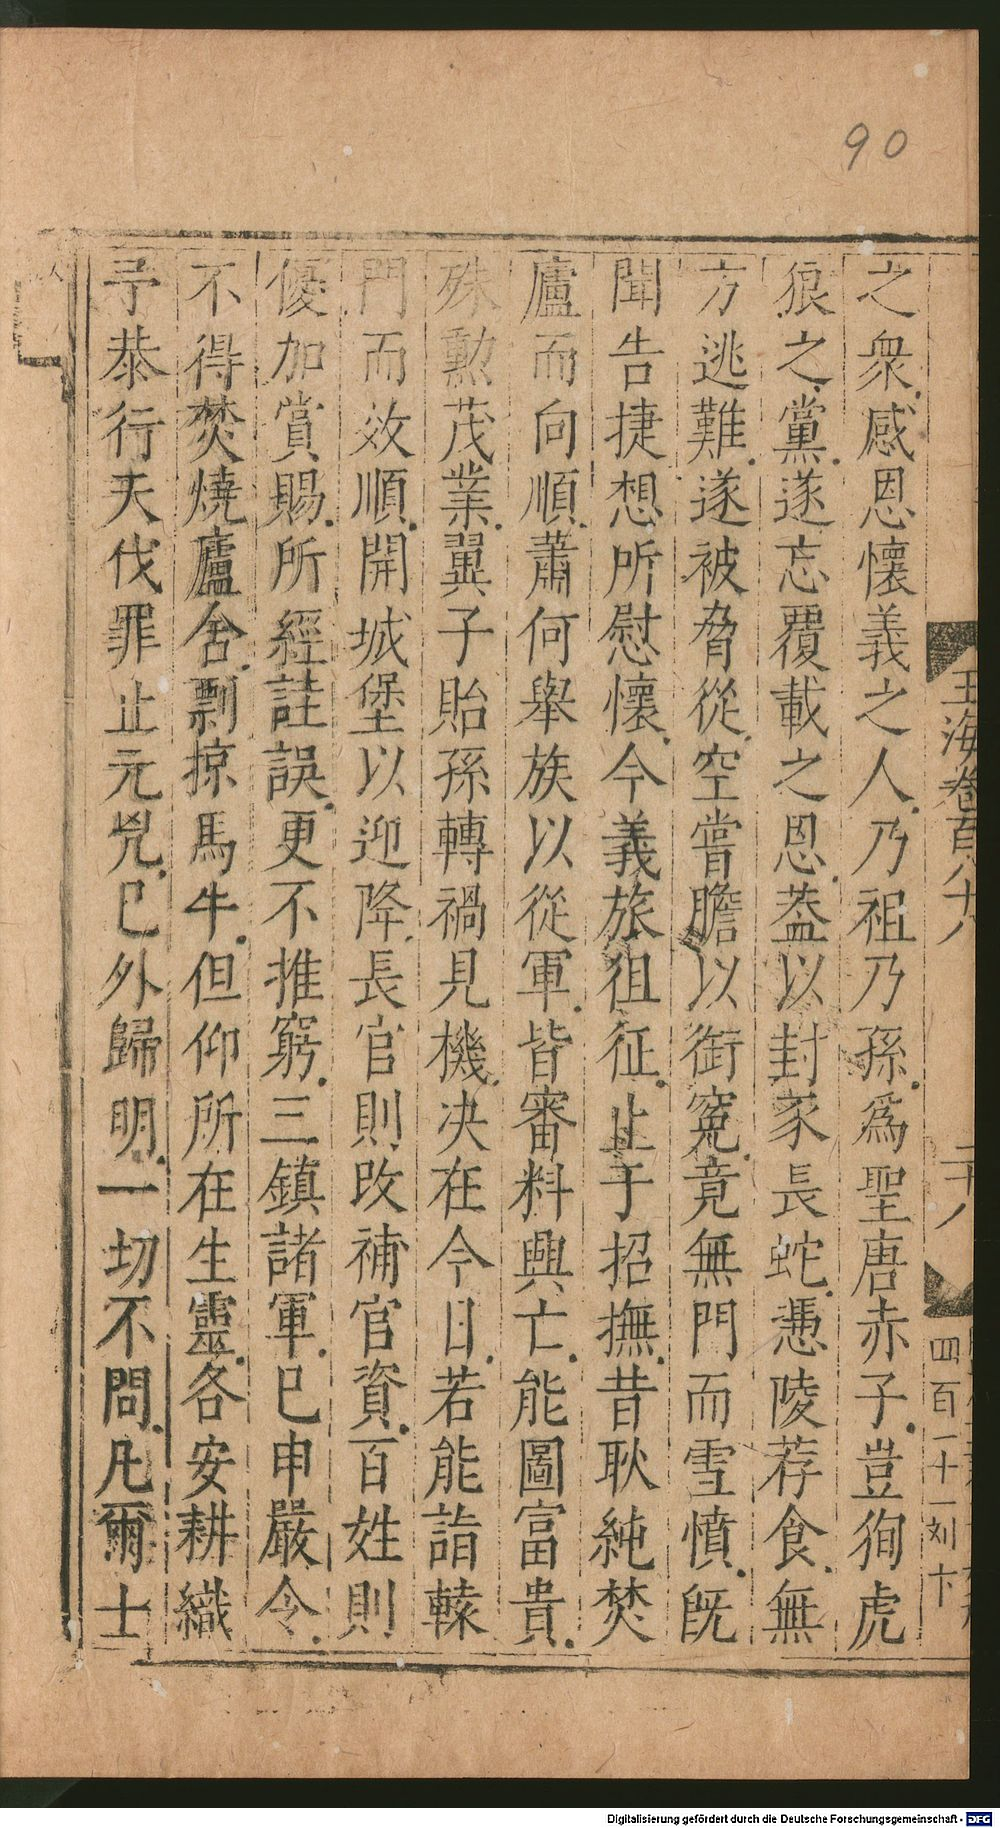 90
玉海卷百八十八
二十八
四百二十一刘卞
之衆感恩懷義之人乃祖乃孫爲聖唐赤子豈徇虎
狼之黨遂忘覆載之恩葢以封豕長蛇憑陵荐食無
方逃難遂被脅從空嘗膽以銜寃竟無門而雪憤旣
聞告捷想所慰懷今義旅徂征止于招撫昔耿純焚
廬而向順蕭何舉族以從軍皆審料興亡能圖富貴
殊勲茂業翼子貽孫轉禍見機决在今日若能詣轅
門而效順開城堡以迎降長官則改補官資百姓則
優加賞賜所經詿誤更不推窮三鎮諸軍已申嚴令
不得焚燒廬舍剽掠馬牛但仰所在生靈各安耕織
予恭行天伐罪止元兇已外歸明一切不問凡爾士
Digitalisierung gefördert durch die Deutsche Forschungsgemeinschaft - DFG